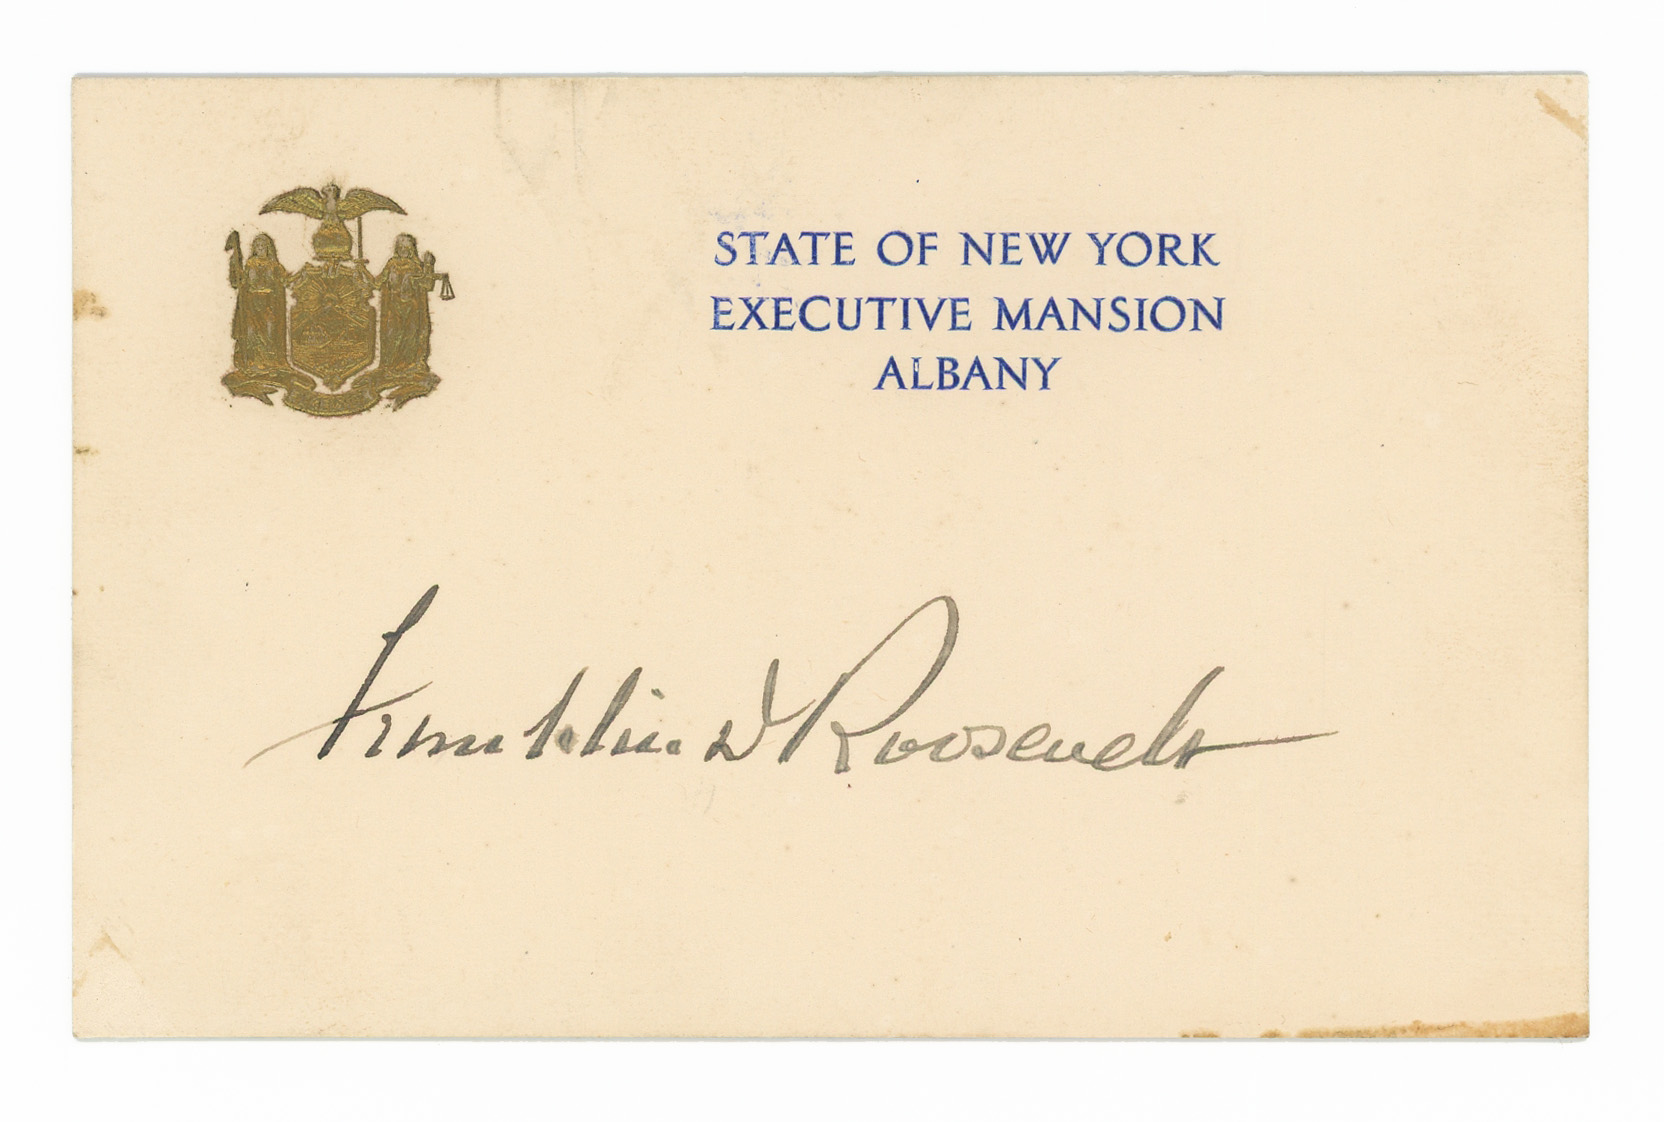 STATE OF NEW YORK
EXECUTIVE MANSION
ALBANY
Franklin D Roosevelt